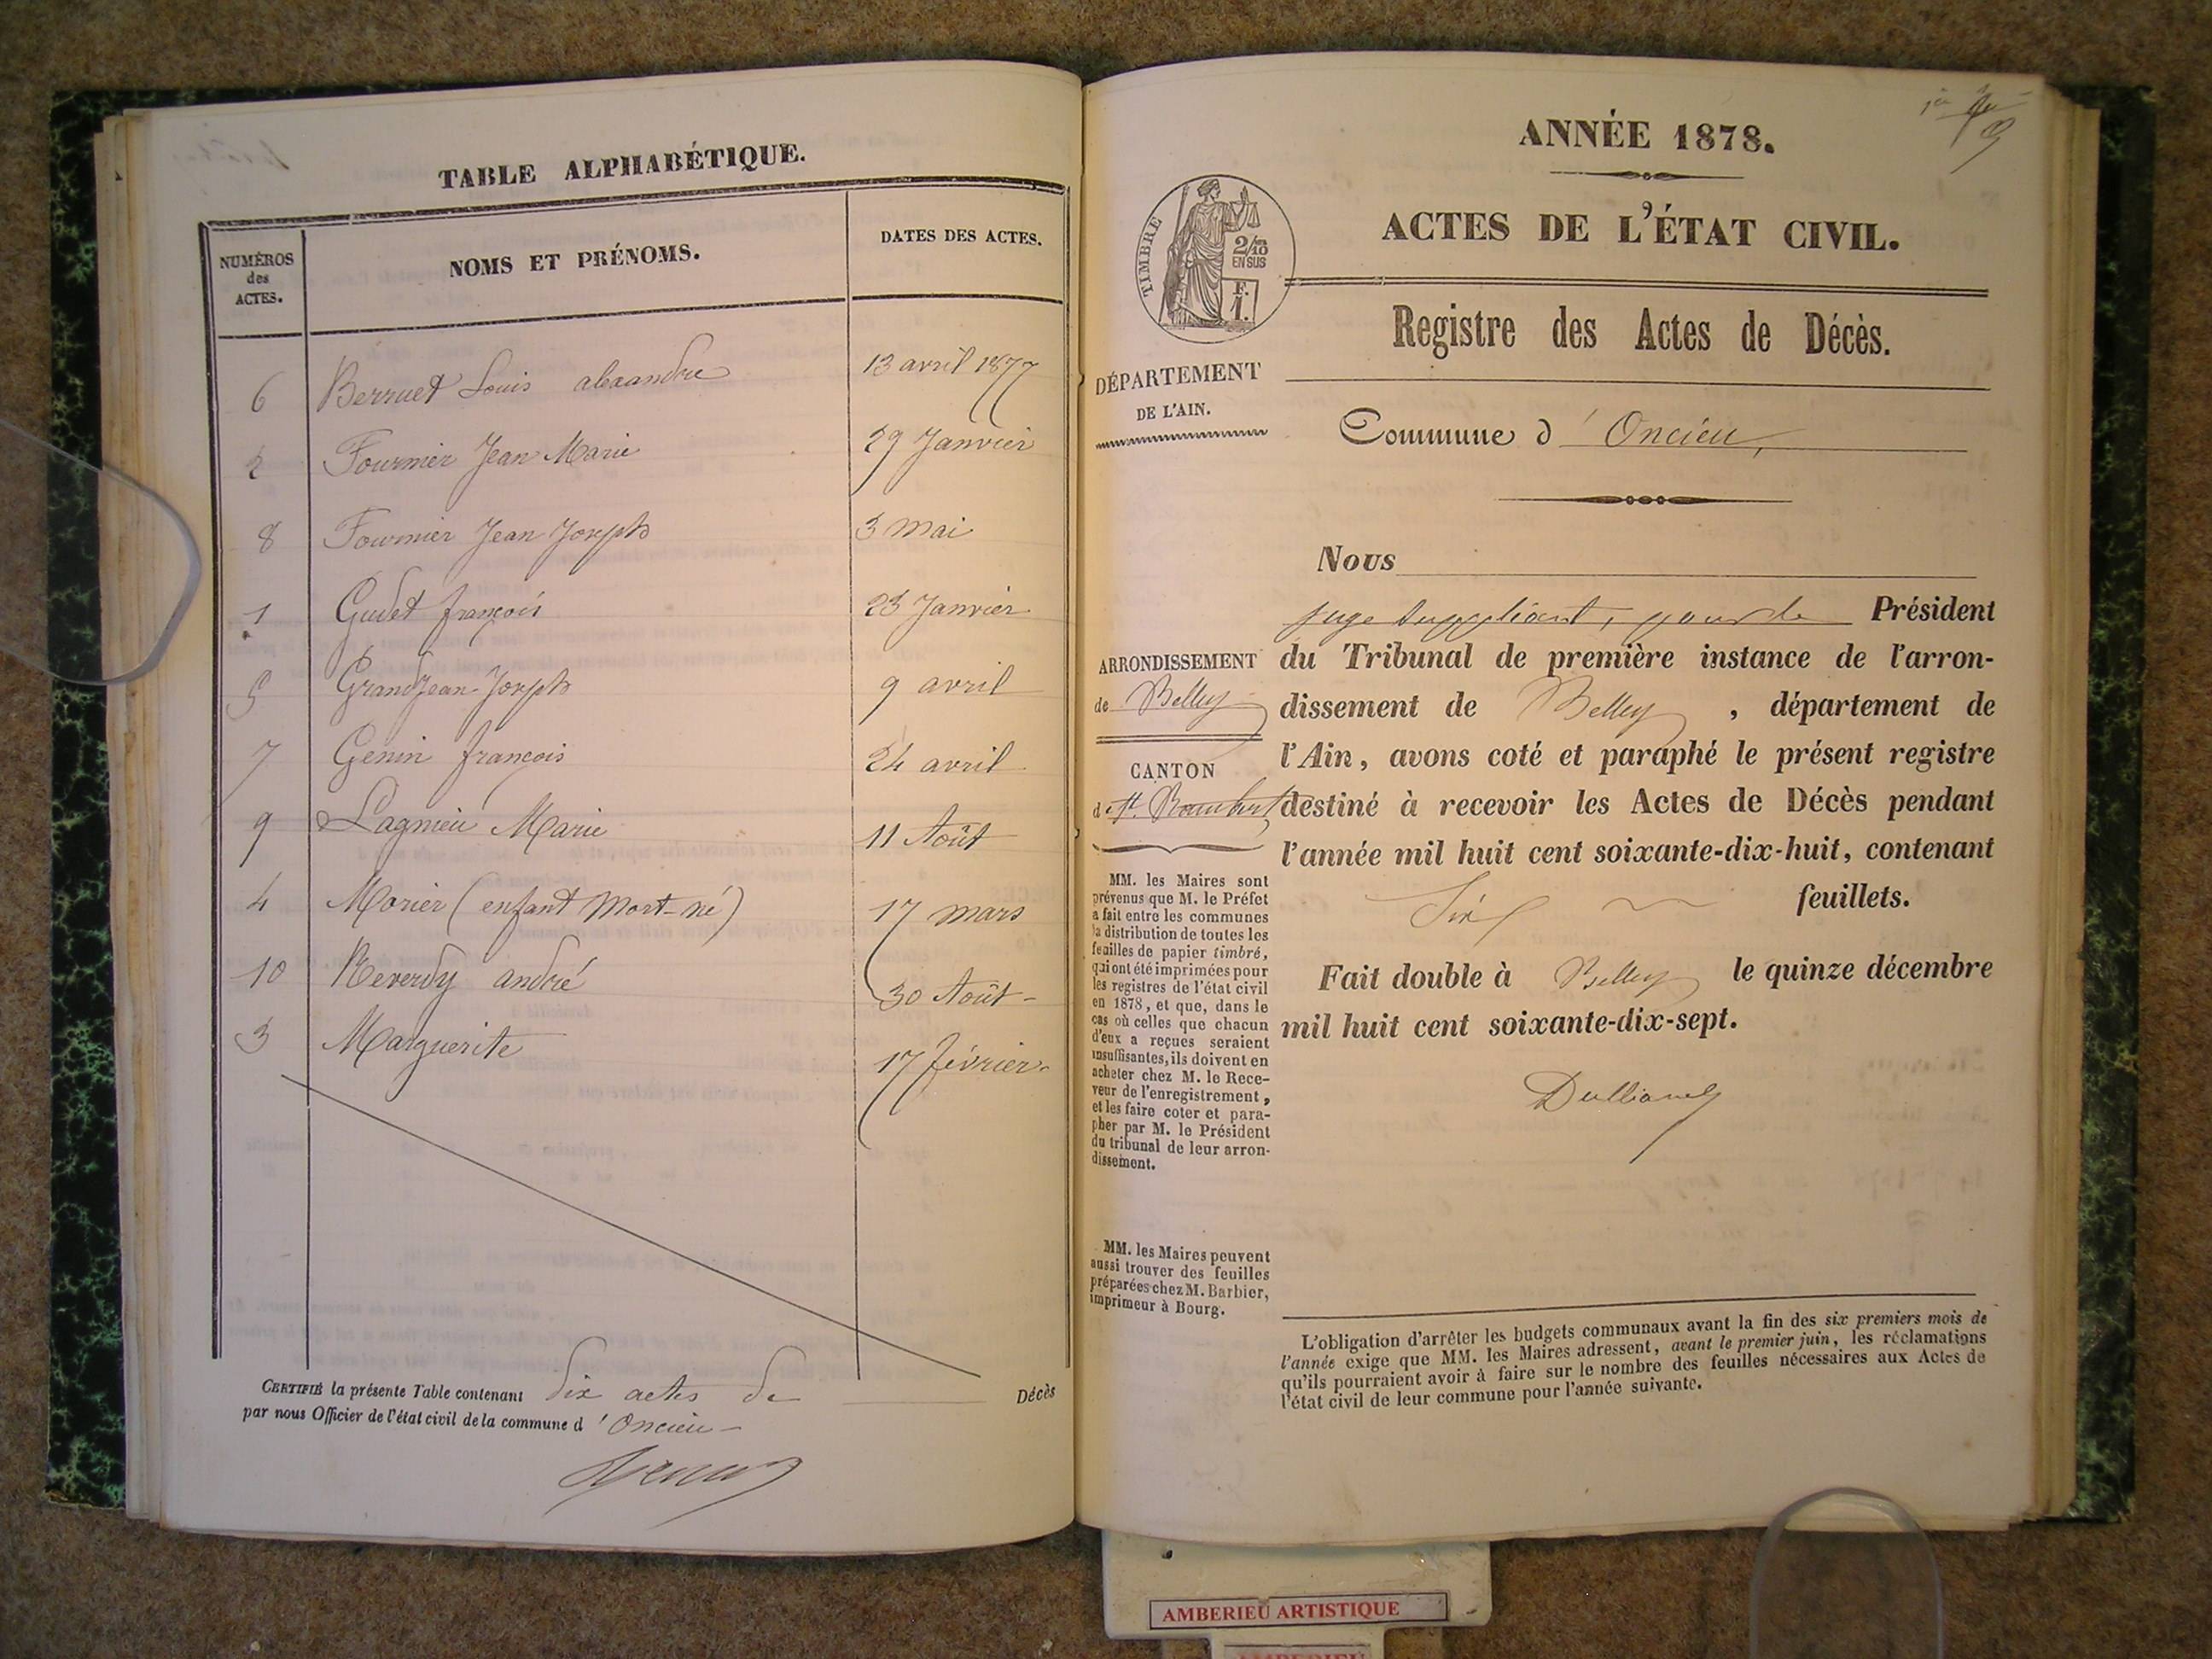 TABLE ALPHABÉTIQUE.
NUMÉROS
des
ACTES.
NOMS ET PRÉNOMS.
DATES DES ACTES.
6 Berruet Louis alexandre 13 avril 1877
2 Fournier Jean Marie 29 Janvier
8 Fournier Jean Joseph 3 mai
1 Gudet françois 23 Janvier
5 GrandJean Joseph 9 avril
7 Genin françois 24 avril
9 Lagnieu Marie 11 Août
4 Morier (enfant Mort-né) 17 mars
10 Reverdy andré 30 Août
3 Marguerite 17 février
CERTIFIÉ la présente Table contenant dix actes de Décès
par nous Officier de l'état civil de la commune d'Oncieu
ANNÉE 1878.
ACTES DE L'ÉTAT CIVIL.
TIMBRE
2/10
EN SUS
F.
1.
Registre des Actes de Décès.
DÉPARTEMENT
DE L'AIN.
Commune d'Oncieu,
Nous
juge suppléant, pour le Président
du Tribunal de première instance de l'arron-
dissement de Belley, département de
l'Ain, avons coté et paraphé le présent registre
destiné à recevoir les Actes de Décès pendant
l'année mil huit cent soixante-dix-huit, contenant
Six feuillets.
Fait double à Belley le quinze décembre
mil huit cent soixante-dix-sept.
ARRONDISSEMENT
de Belley
CANTON
de St. Rambert
MM. les Maires sont
prévenus que M. le Préfet
a fait entre les communes
la distribution de toutes les
feuilles de papier timbré,
qui ont été imprimées pour
les registres de l'état civil
en 1878, et que, dans le
cas où celles que chacun
d'eux a reçues seraient
insuffisantes, ils doivent en
acheter chez M. le Rece-
veur de l'enregistrement,
et les faire coter et para-
pher par M. le Président
du tribunal de leur arron-
dissement.
MM. les Maires peuvent
aussi trouver des feuilles
préparées chez M. Barbier,
imprimeur à Bourg.
L'obligation d'arrêter les budgets communaux avant la fin des six premiers mois de
l'année exige que MM. les Maires adressent, avant le premier juin, les réclamations
qu'ils pourraient avoir à faire sur le nombre des feuilles nécessaires aux Actes de
l'état civil de leur commune pour l'année suivante.
AMBERIEU ARTISTIQUE
AMBERIEU